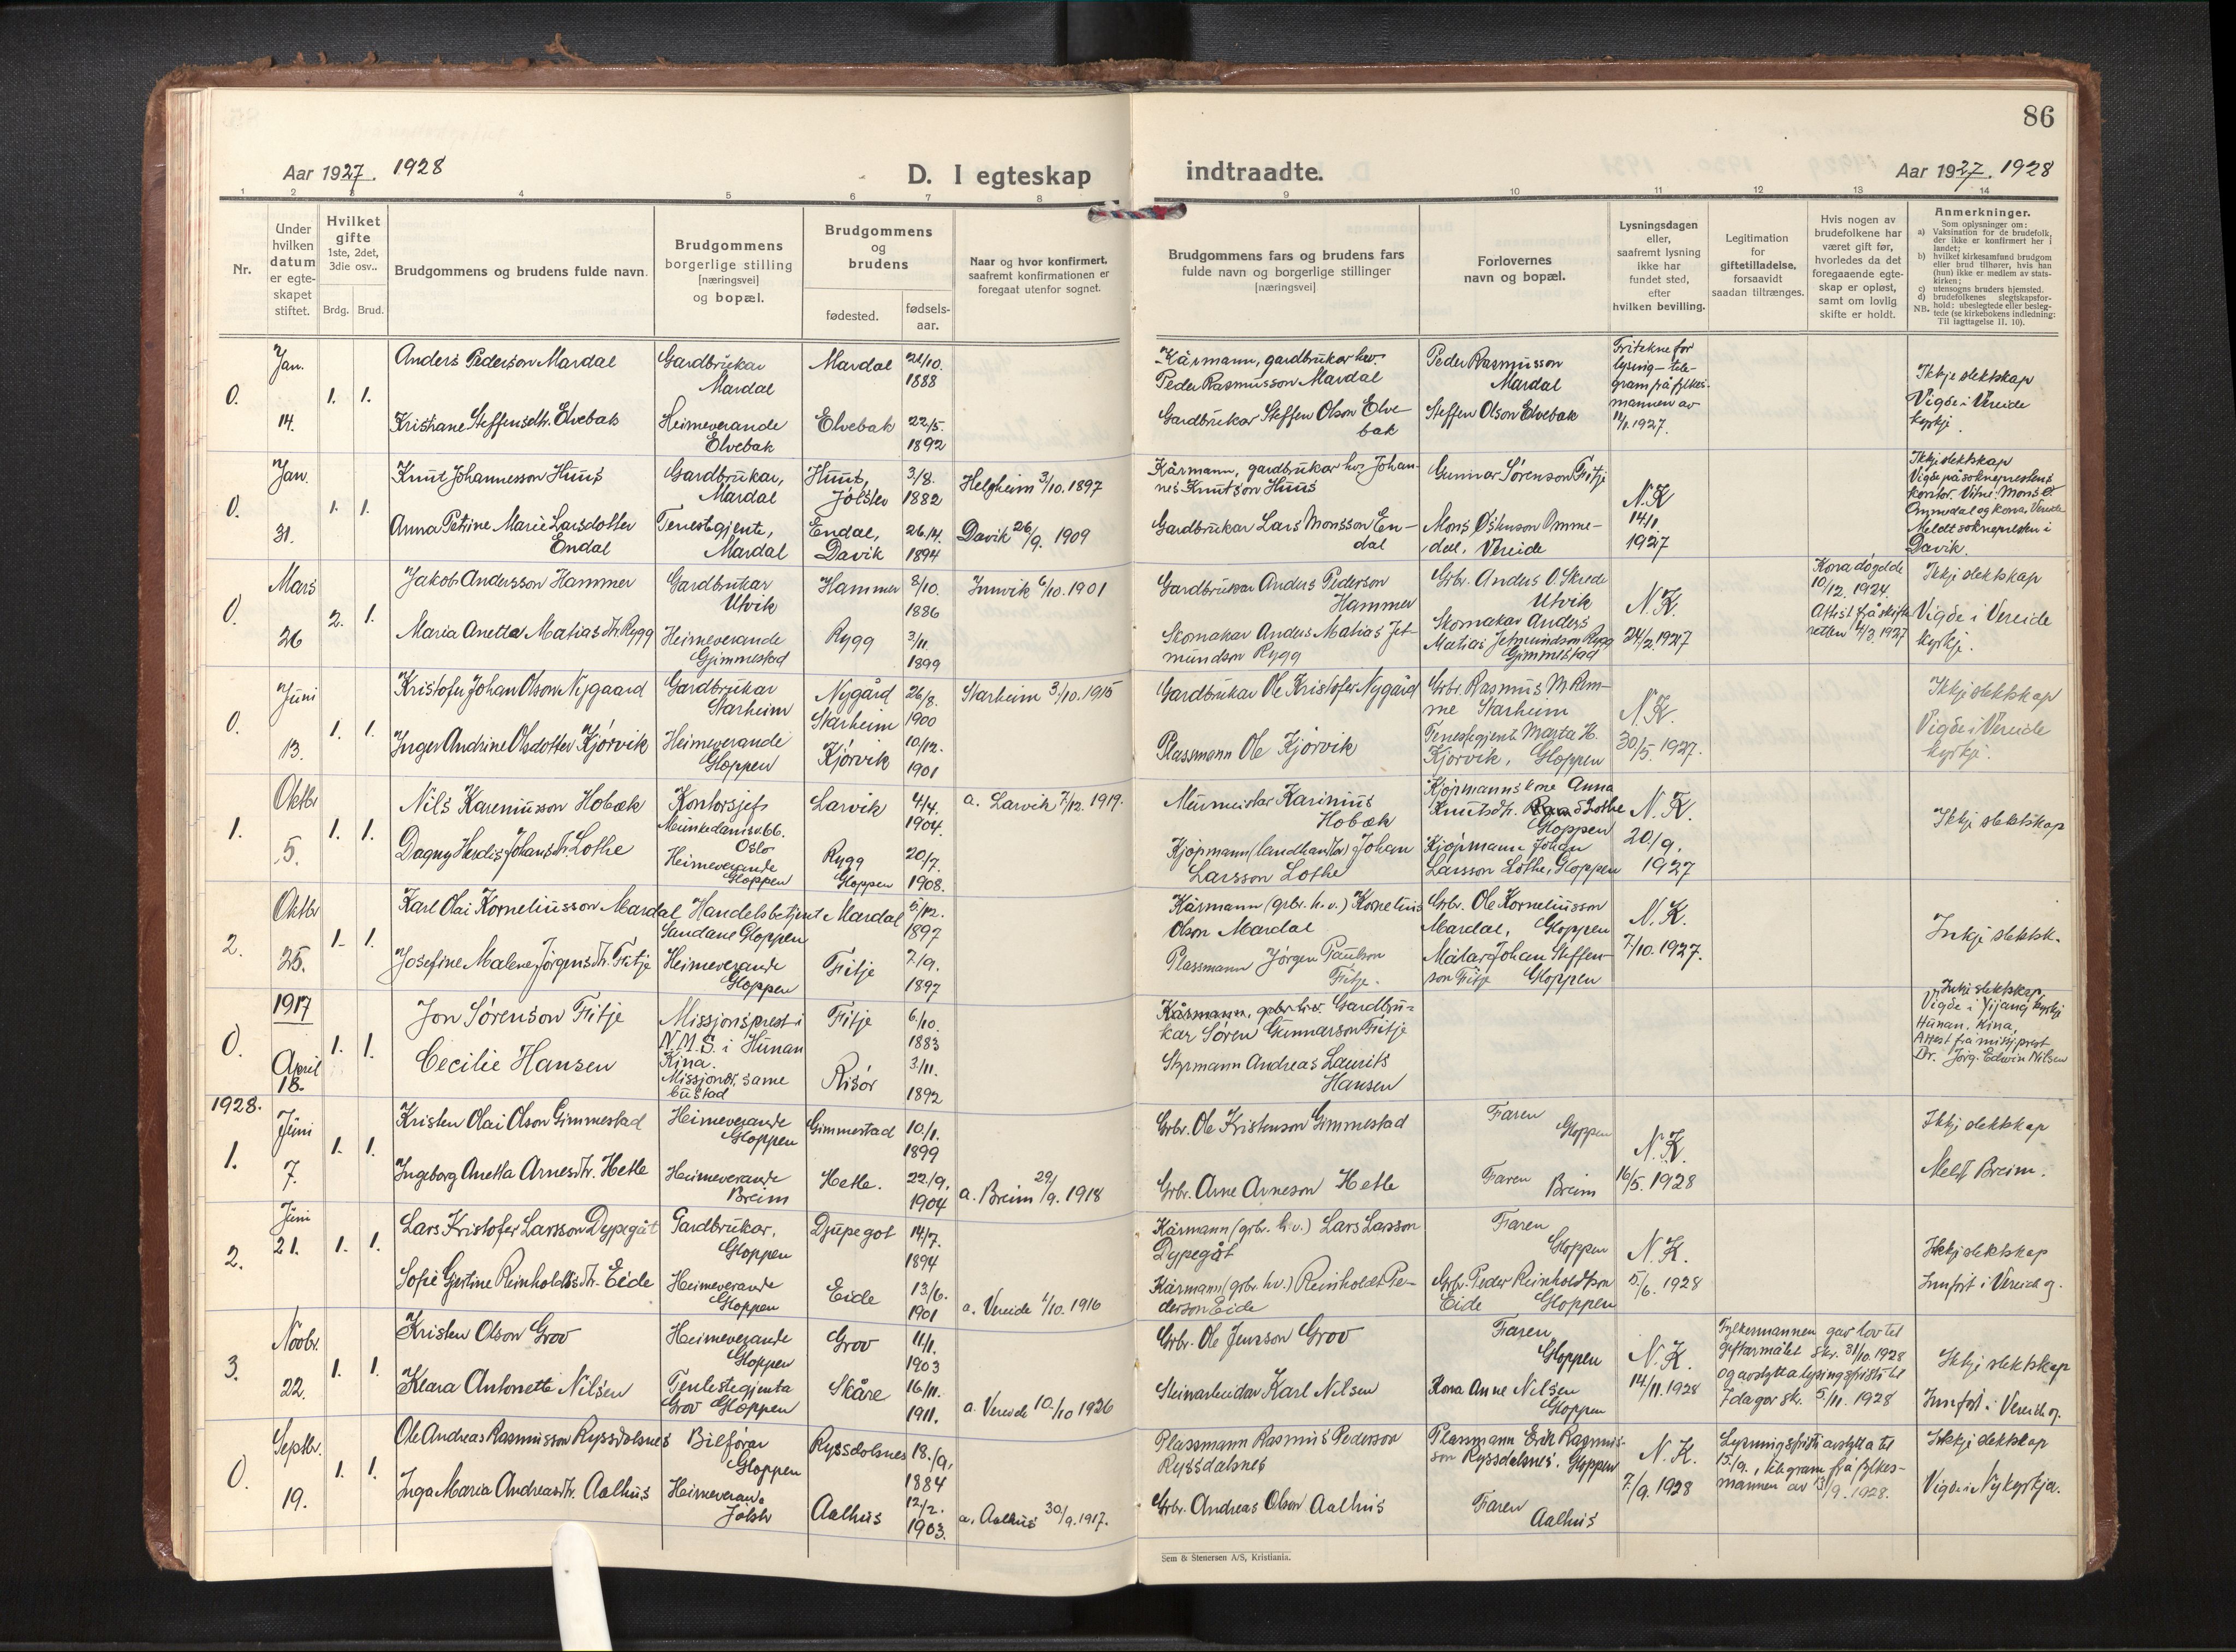 86
Aar 1927. 1928
D. I egteskap
indtraadte.
Aar 1927. 1928
1 2 3 4 5 6 7 8 9 10 11 12 13 14
Nr.
Under
hvilken
datum
er egte-
skapet
stiftet.
Hvilket
gifte
1ste, 2det,
3die osv..
Brdg. Brud.
Brudgommens og brudens fulde navn.
Brudgommens
borgerlige stilling
[næringsvei]
og bopæl.
Brudgommens
og
brudens
fødested.
fødsels-
aar.
Naar og hvor konfirmert,
saafremt konfirmationen er
foregaat utenfor sognet.
Brudgommens fars og brudens fars
fulde navn og borgerlige stillinger
[næringsvei]
Forlovernes
navn og bopæl.
Lysningsdagen
eller,
saafremt lysning
ikke har
fundet sted,
efter
hvilken bevilling.
Legitimation
for
giftetilladelse,
forsaavidt
saadan tiltrænges.
Hvis nogen av
brudefolkene har
været gift før,
hvorledes da det
foregaaende egte-
skap er opløst,
samt om lovlig
skifte er holdt.
Anmerkninger.
Som oplysninger om:
a) Vaksination for de brudefolk,
der ikke er konfirmert her i
landet;
b) hvilket kirkesamfund brudgom
eller brud tilhører, hvis han
(hun) ikke er medlem av stats-
kirken;
c) utensogns bruders hjemsted.
d) brudefolkenes slegtskapsfor-
hold: ubeslegtede eller besleg-
NB. tede (se kirkebokens indledning:
Til iagttagelse II. 10).
0.
Jan.
14.
1. 1.
Anders Pederson Mardal
Kristiane Steffensdtr. Elvebak
Gardbrukar
Mardal
Heimeverande
Elvebak
Mardal
Elvebak
21/10.
1888
22/5.
1892
Kårmann, gardbrukar hev
Peder Rasmusson Mardal
Gardbrukar Steffen Olson Elve-
bak
Peder Rasmusson
Mardal
Steffen Olson Elvebak
Fritekne for
lysing – tele-
gram frå fylkes-
mannen av
11/1. 1927.
Ikkje slektskap
Vigde i Vereide
kyrkje.
0.
Jan.
31.
1. 1.
Knut Johannesson Huus
Anna Petrine Marie Larsdotter
Endal
Gardbrukar,
Mardal
Tenestgjente,
Mardal
Huus,
Jølster
Endal,
Davik
3/8.
1882
26/4.
1894
Helgheim 3/10. 1897
Davik 26/9. 1909
Kårmann, gardbrukar hev Johan-
nes Knutson Huus
Gardbrukar Lars Monsson En-
dal
Gunnar Sørenson Fitje
Mons Østenson Omme-
dal, Vereide
N.K
14/1.
1927
Ikkje slektskap
Vigde på sokneprestens
kontor. Vitne: Mons Ø.
Ommedal og kona, Vereide
Meldt soknepresten i
Davik.
0.
Mars
26
2. 1.
Jakob Andersson Hammer
Maria Anetta Matiasdtr. Rygg
Gardbrukar
Utvik
Heimeverande
Gimmestad
Hammer
Rygg
8/10.
1886
3/11
1899
Innvik 6/10. 1901
Gardbrukar Anders Pederson
Hammer
Skomakar Anders Matias Jet-
mundson Rygg
Grb. Anders O. Skrede
Utvik
Skomakar Anders
Matias Jetmundson Rygg
Gimmestad
N.K.
24/2. 1927
Kona døydde
10/12. 1924.
Attest frå skifte-
retten 4/3. 1927
Ikkje slektskap
Vigde i Vereide
kyrkje.
0.
Juni
13.
1. 1.
Kristofer Johan Olson Nygaard
Inger Andrine Olsdotter Kjørvik
Gardbrukar
Starheim
Heimeverande
Gloppen
Nygård
Starheim
Kjørvik
26/8.
1900
10/12.
1901
Starheim 3/10. 1915
Gardbrukar Ole Kristofer Nygård
Plassmann Ole Kjørvik
Grbr. Rasmus M. Rem-
me Starheim
Tenestegjent Marta H.
Kjørvik, Gloppen
N.K.
30/5. 1927.
Ikkje slektskap
Vigde i Vereide
kyrkje.
1.
Oktbr
5.
1. 1.
Nils Kareniusson Hobæk
Dagny Herdis Johansdtr. Lothe
Kontorsjef
Munkedamsv. 66.
Oslo
Heimeverande
Gloppen
Larvik
Rygg
Gloppen
4/4.
1904.
20/7.
1908.
a. Larvik 7/12. 1919.
Murmeister Karinius
Hobæk
Kjøpmann (landhandler) Johan
Larsson Lothe
Kjøpmannskone Anna
Knutsdtr. Lothe
Gloppen
Kjøpmann Johan
Larsson Lothe, Gloppen
N.K.
20/9.
1927
Ikkje slektskap
2.
Oktbr
25.
1. 1.
Karl Olai Korneliusson Mardal
Josefine Malene Jørgensdtr. Fitje
Handelsbetjent
Sandane Gloppen
Heimeverande
Gloppen
Mardal
Fitje
5/12.
1897
7/9.
1897
Kårmann (grbr. h.v.) Kornelius
Olson Mardal
Plassmann Jørgen Paulson
Fitje.
Grbr. Ole Korneliusson
Mardal, Gloppen
Målar Johan Steffen-
son Fitje Gloppen
N.K.
7/10. 1927.
Inkje slektsk.
0.
1917
April
18.
1. 1.
Jon Sørenson Fitje
Cecilie Hansen
Missjonsprest i
N.M.S. i Hunan
Kina.
Missjonær, same
bustad
Fitje
Risør
6/10.
1883
3/11.
1892
Kårmann, grbr. h.v. Gardbru-
kar Søren Gunnarson Fitje
Styrmann Andreas Laurits
Hansen
Inkje slektskap
Vigde i Yijang kyrkje
Hunan, Kina,
Attest frå misj. prest
Dr. Jørg. Edwin Nilsen
1928.
1.
Juni
7.
1. 1.
Kristen Olai Olson Gimmestad
Ingeborg Anetta Arnesdtr. Hetle
Heimeverande
Gloppen
Heimeverande
Breim
Gimmestad
Hetle.
10/1.
1899
22/9.
1904
a. Breim 29/9. 1918
Grbr. Ole Kristenson Gimmestad
Grbr. Arne Arneson Hetle
Faren
Gloppen
Faren
Breim
N.K.
16/5. 1928
Ikkje slektskap
Meldt Breim.
2.
Juni
21.
1. 1.
Lars Kristofer Larsson Dypegåt
Sofie Gjertine Reinholdtsdtr. Eide
Gardbrukar,
Gloppen
Heimeverande
Gloppen
Djupegot
Eide
14/7.
1894
13/6.
1901
a. Vereide 1/10. 1916
Kårmann (grbr. h.v.) Lars Larsson
Dypegåt
Kårmann (grbr. h.v.) Reinholdt Pe-
derson Eide
Faren
Gloppen
Grbr. Peder Reinholdtson
Eide Gloppen
N.K.
5/6. 1928
Ikkje slektskap
Innført i Vereide og.
3.
Novbr.
22.
1. 1.
Kristen Olson Grov
Klara Antonette Nilsen
Heimeverande
Gloppen
Tenestegjenta
Grov Gloppen
Grov
Skåre
11/1.
1903
16/11.
1911.
a. Vereide 10/10 1926
Grbr. Ole Jensson Grov
Steinarbeidar Karl Nilsen
Faren
Gloppen
Kona Anne Nilsen
Gloppen
N.K.
14/11. 1928
Fylkesmannen gav lov til
giftarmålet skr. 31/10. 1928
og avstytta lysingsfristi til
7 dagar skr. 5/11. 1928
Ikkje slektskap
Innført i Vereide og.
0.
Septbr.
19.
1. 1.
Ole Andreas Rasmusson Ryssdalsnes
Inga Maria Andreasdtr. Aalhus
Bilførar
Gloppen
Heimeverande
Jølstr
Ryssdalsnes
Aalhus
18/9.
1884
12/2.
1903.
a. Aalhus 30/9. 1917.
Plassmann Rasmus Pederson
Ryssdalsnes
Grbr. Andreas Olson Aalhus
Plassmann Erik Rasmus-
son Ryssdalsnes. Gloppen
Faren
Aalhus
N.K.
7/9. 1928
Lysningsfristi avstytta til
15/9., telegram frå fylkes-
mannen av 13/9. 1928.
Ikkje slektskap
Vigde i Nykyrkja.
Sem & Stenersen A/S, Kristiania.